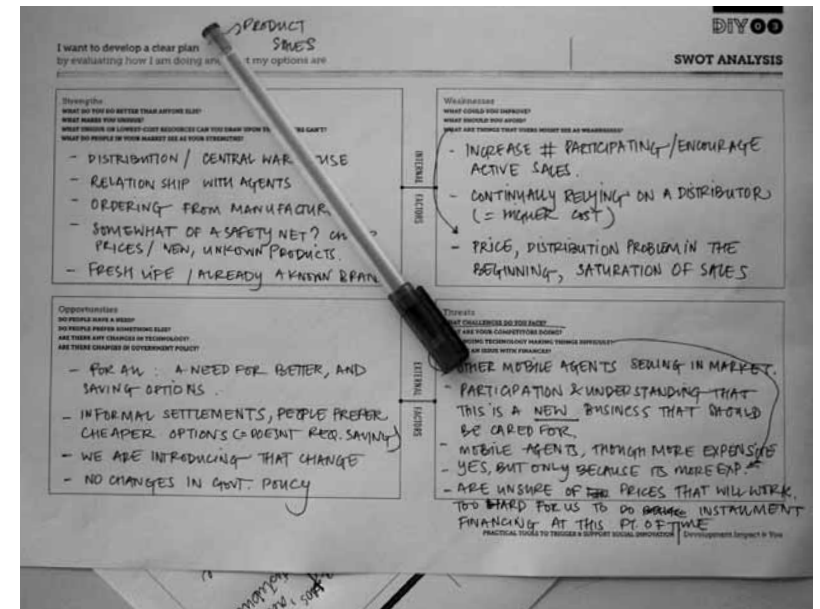 PRODUCT
SALES
DIY 03
I want to develop a clear plan
by evaluating how I am doing and my options are
SWOT ANALYSIS
Strengths
WHAT DO YOU DO BETTER THAN ANYONE ELSE?
WHAT MAKES YOU UNIQUE?
WHAT UNIQUE OR LOWEST-COST RESOURCES CAN YOU DRAW UPON CAN'T?
WHAT DO PEOPLE IN YOUR MARKET SEE AS YOUR STRENGTHS?
- DISTRIBUTION / CENTRAL WAR USE
- RELATION SHIP WITH AGENTS
- ORDERING FROM MANUFACTUR
- SOMEWHAT OF A SAFETY NET?
PRICES / NEW, UNKOWN PRODUCTS.
- FRESH LIFE / ALREADY A KNOWN BRAN
INTERNAL FACTORS
Weaknesses
WHAT COULD YOU IMPROVE?
WHAT SHOULD YOU AVOID?
WHAT ARE THINGS THAT USERS MIGHT SEE AS WEAKNESSES?
- INCREASE # PARTICIPATING / ENCOURAGE
ACTIVE SALES.
- CONTINUALLY RELYING ON A DISTRIBUTOR
(= HIGHER COST)
- PRICE, DISTRIBUTION PROBLEM IN THE
BEGINNING, SATURATION OF SALES
Opportunities
DO PEOPLE HAVE A NEED?
DO PEOPLE PREFER SOMETHING ELSE?
ARE THERE ANY CHANGES IN TECHNOLOGY?
ARE THERE CHANGES IN GOVERNMENT POLICY?
- FOR ALL : A NEED FOR BETTER, AND
SAVING OPTIONS.
- INFORMAL SETTLEMENTS, PEOPLE PREFER
CHEAPER OPTIONS (= DOESNT REQ. SAVING)
- WE ARE INTRODUCING THAT CHANGE
- NO CHANGES IN GOVT. POLICY
EXTERNAL FACTORS
Threats
WHAT CHALLENGES DO YOU FACE?
WHAT ARE YOUR COMPETITORS DOING?
TECHNOLOGY MAKING THINGS DIFFICULT?
AN ISSUE WITH FINANCES?
OTHER MOBILE AGENTS SELLING IN MARKET.
- PARTICIPATION & UNDERSTANDING THAT
THIS IS A NEW BUSINESS THAT SHOULD
BE CARED FOR.
- MOBILE AGENTS, THOUGH MORE EXPENSIVE
- YES, BUT ONLY BECAUSE ITS MORE EXP.
- ARE UNSURE OF PRICES THAT WILL WORK.
TOO HARD FOR US TO DO INSTALLMENT
FINANCING AT THIS PT. OF TIME
PRACTICAL TOOLS TO TRIGGER & SUPPORT SOCIAL INNOVATION | Development Impact & You